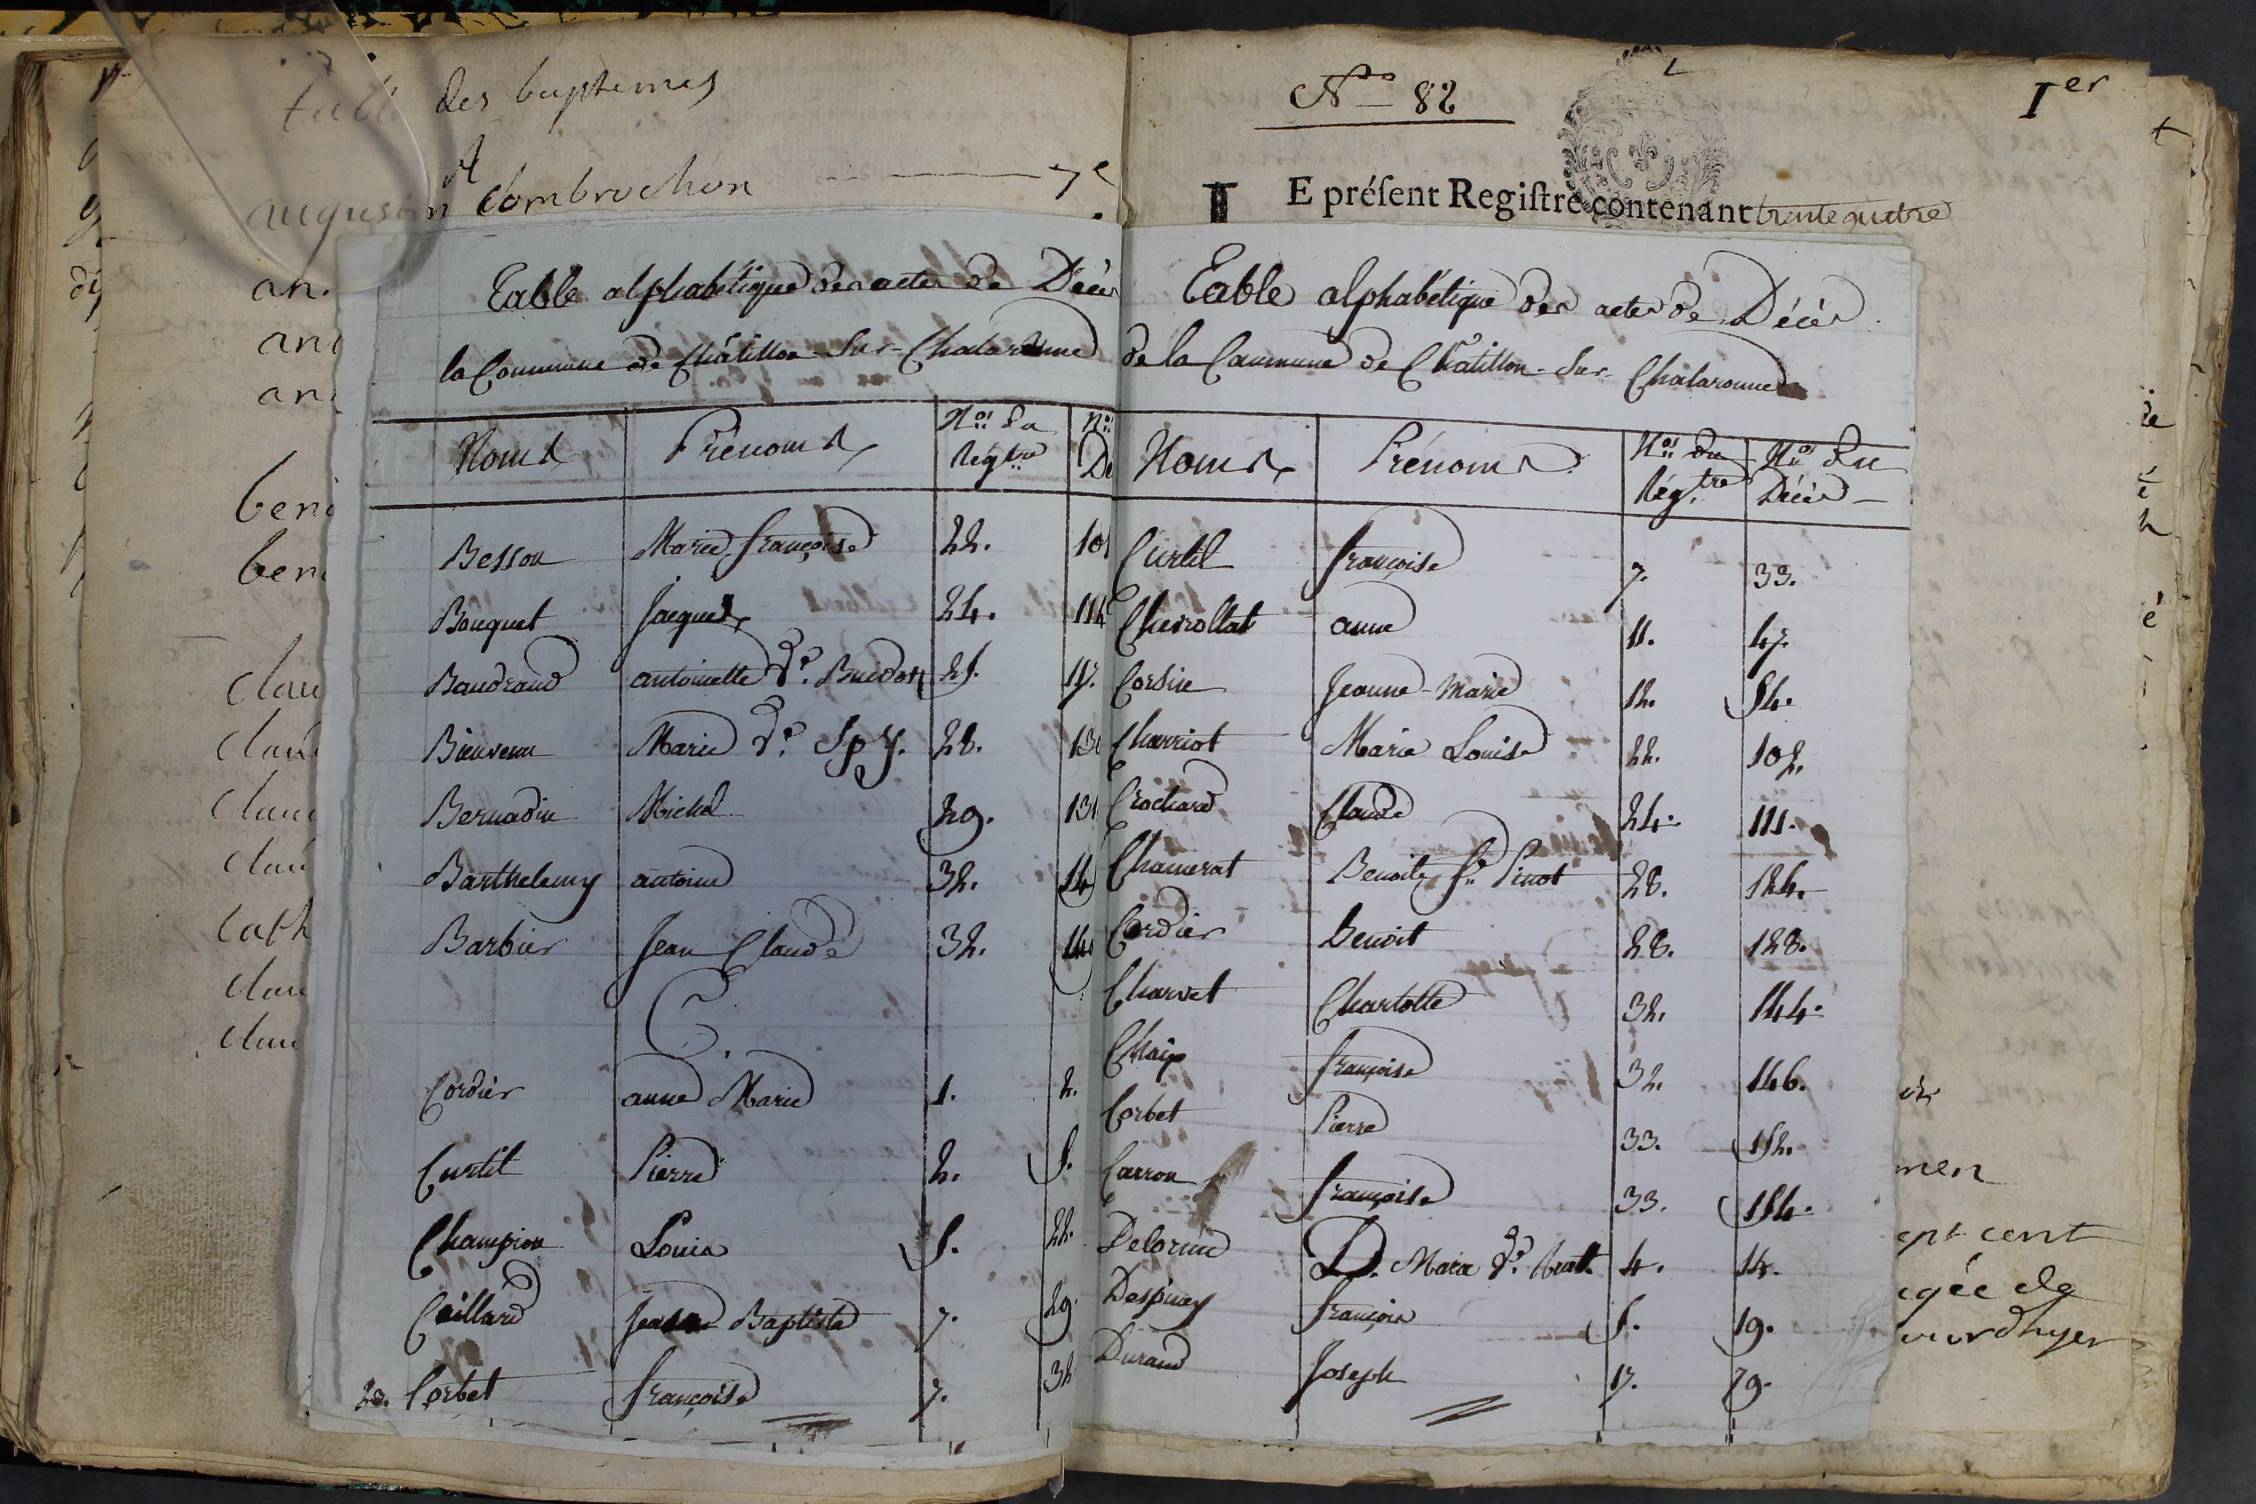 table des baptemes
A
augustin Combrochon 7e
an
an
an
beni
ben
clau
clau
clau
clau
cath
clau
clau
Table alphabétique des actes de Décès
la Commune de Châtillon-Sur-Chalaronne
Noms Prénoms Nos du Régtre Nos De
Besson Marie françoise 22. 101
Bouquet Jacques 24. 114
Baudrand antoinette De. Buidot 25. 117.
Bienvenu Marie De. Spy. 28. 130
Bernadin Michel 29. 131
Barthelemy antoine 32. 14
Barbier Jean Claude 32. 14
C.
Cordier anne Marie 1. 2.
Curtil Pierre 2. 5.
Champion Louis 5. 22.
Caillard Jean Baptiste 7. 29.
Corbet françoise 7. 32
No. 82
Ier
E préſent Regiſtre contenant trente quatre
Table alphabétique des actes de Décès
de la Commune de Châtillon-Sur-Chalaronne
Noms Prénoms Nos du Régtre Nos du Décès
Curtil françoise 7. 33.
Cheirollat anne 11. 47.
Corsin Jeanne-Marie 12. 54.
Charriot Marie Louise 22. 102.
Crochard Claude 24. 111.
Chamerat Benoite fe Pinot 28. 124.
Cordier Benoit 28. 128.
Charvet Charlotte 32. 144.
Chaix françoise 32. 146.
Corbet Pierre 33. 152.
Carron françoise 33. 154.
Delorme D. Marie De. 4. 14.
Despiney françois 5. 19.
Durand Joseph 17. 79.
men
ept cent
egée de
ourdhyer